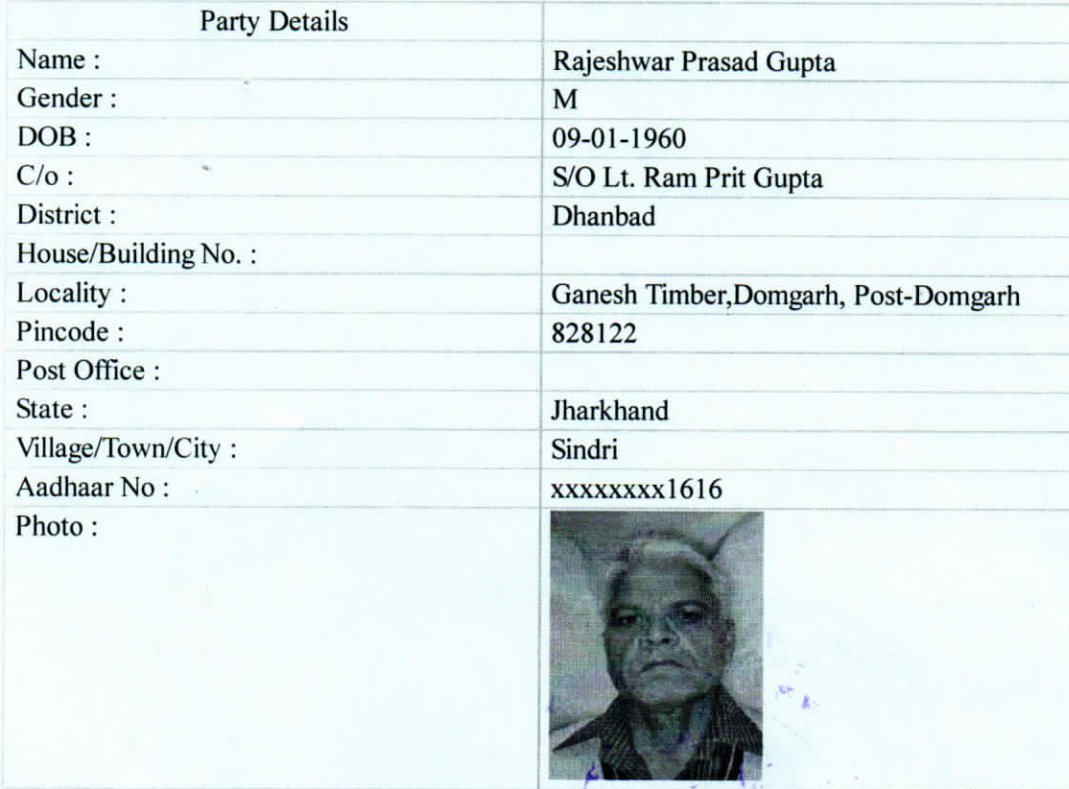 Party Details
Name : Rajeshwar Prasad Gupta
Gender : M
DOB : 09-01-1960
C/o : S/O Lt. Ram Prit Gupta
District : Dhanbad
House/Building No. :
Locality : Ganesh Timber,Domgarh, Post-Domgarh
Pincode : 828122
Post Office :
State : Jharkhand
Village/Town/City : Sindri
Aadhaar No : xxxxxxxx1616
Photo :